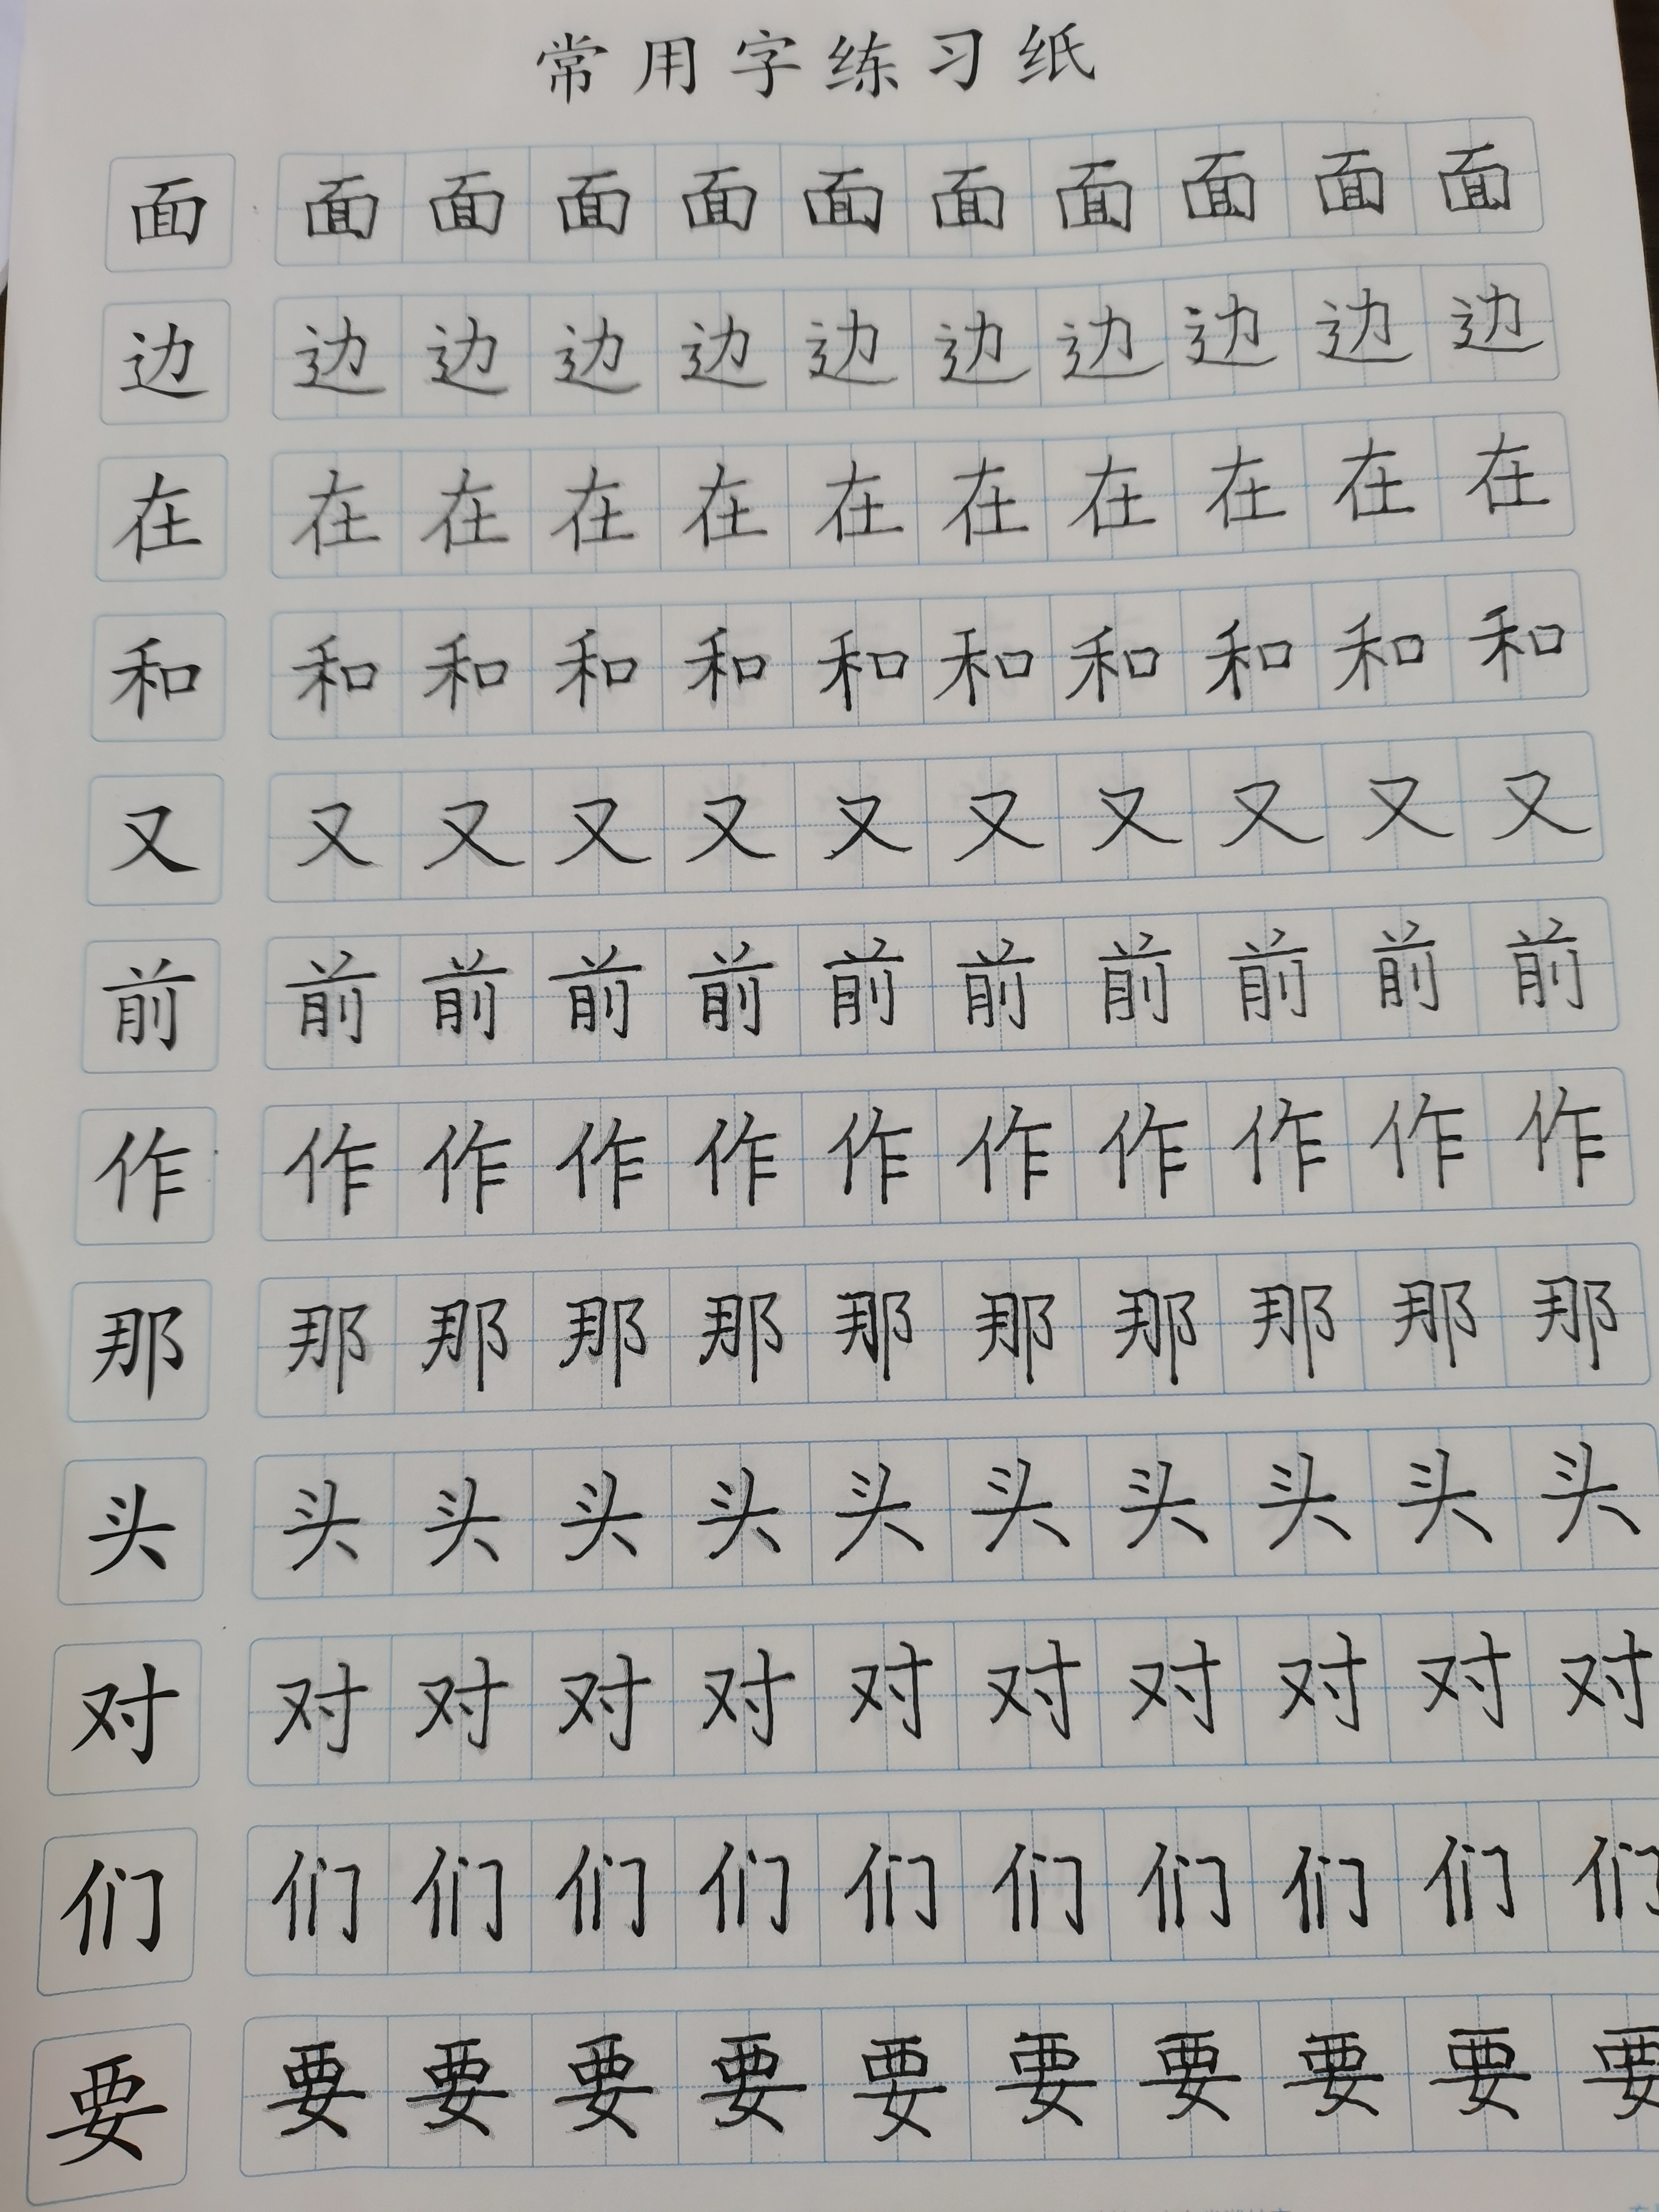 常用字练习纸
面 面 面 面 面 面 面 面 面 面 面
边 边 边 边 边 边 边 边 边 边 边
在 在 在 在 在 在 在 在 在 在 在
和 和 和 和 和 和 和 和 和 和 和
又 又 又 又 又 又 又 又 又 又 又
前 前 前 前 前 前 前 前 前 前 前
作 作 作 作 作 作 作 作 作 作 作
那 那 那 那 那 那 那 那 那 那 那
头 头 头 头 头 头 头 头 头 头 头
对 对 对 对 对 对 对 对 对 对 对
们 们 们 们 们 们 们 们 们 们 们
要 要 要 要 要 要 要 要 要 要 要